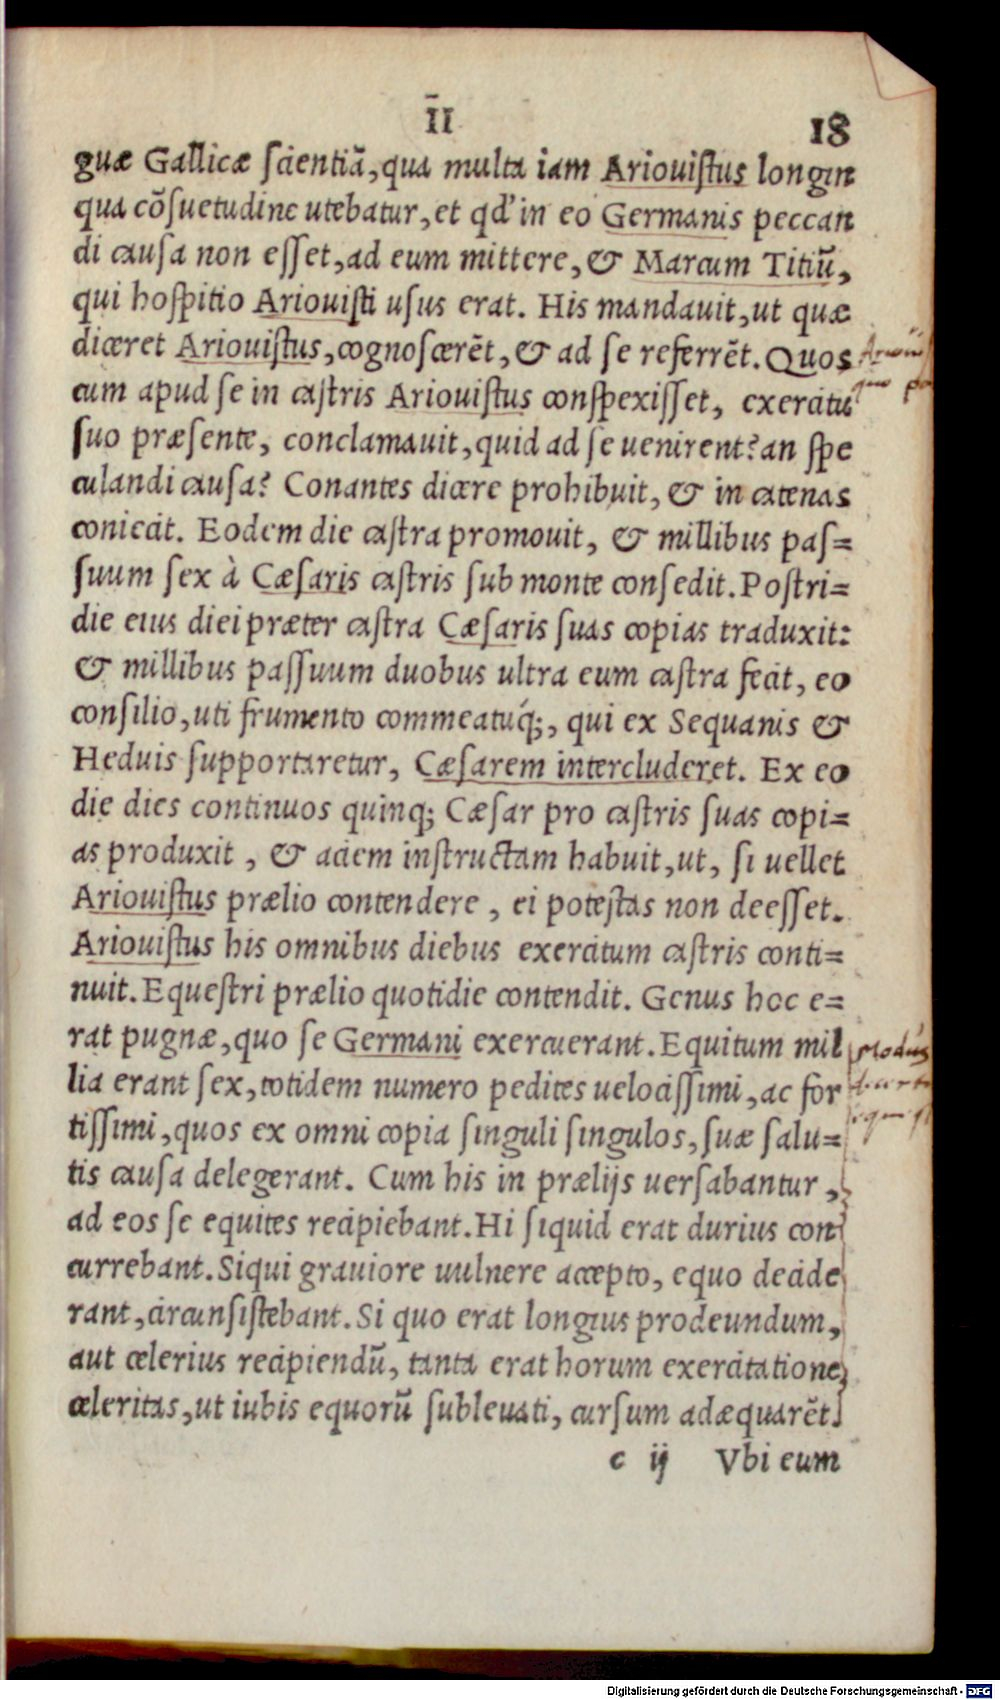 II
18
guæ Gallicæ ſcientiā, qua multa iam Ariouiſtus longin
qua cōſuetudine utebatur, et qd' in eo Germanis peccan
di cauſa non eſſet, ad eum mittere, & Marcum Titiū,
qui hoſpitio Ariouiſti uſus erat. His mandauit, ut quæ
diceret Ariouiſtus, cognoſcerēt, & ad ſe referrēt. Quos
cum apud ſe in caſtris Ariouiſtus conſpexiſſet, exercitu
ſuo præſente, conclamauit, quid ad ſe uenirent? an ſpe
culandi cauſa? Conantes dicere prohibuit, & in catenas
coniecit. Eodem die caſtra promouit, & millibus paſ=
ſuum ſex à Cæſaris caſtris ſub monte conſedit. Poſtri=
die eius diei præter caſtra Cæſaris ſuas copias traduxit:
& millibus paſſuum duobus ultra eum caſtra fecit, eo
conſilio, uti frumento commeatuq́;, qui ex Sequanis &
Heduis ſupportaretur, Cæſarem intercluderet. Ex eo
die dies continuos quinq; Cæſar pro caſtris ſuas copi=
as produxit, & aciem inſtructam habuit, ut, ſi uellet
Ariouiſtus prælio contendere, ei poteſtas non deeſſet.
Ariouiſtus his omnibus diebus exercitum caſtris conti=
nuit. Equeſtri prælio quotidie contendit. Genus hoc e=
rat pugnæ, quo ſe Germani exercuerant. Equitum mil
lia erant ſex, totidem numero pedites uelociſſimi, ac for
tiſſimi, quos ex omni copia ſinguli ſingulos, ſuæ ſalu=
tis cauſa delegerant. Cum his in prælijs uerſabantur,
ad eos ſe equites recipiebant. Hi ſiquid erat durius con
currebant. Siqui grauiore uulnere accepto, equo decide
rant, circunſiſtebant. Si quo erat longius prodeundum,
aut celerius recipiendū, tanta erat horum exercitatione
celeritas, ut iubis equorū ſubleuati, curſum adæquarēt.
c ij Vbi eum
Modus
Digitalisierung gefördert durch die Deutsche Forschungsgemeinschaft - DFG